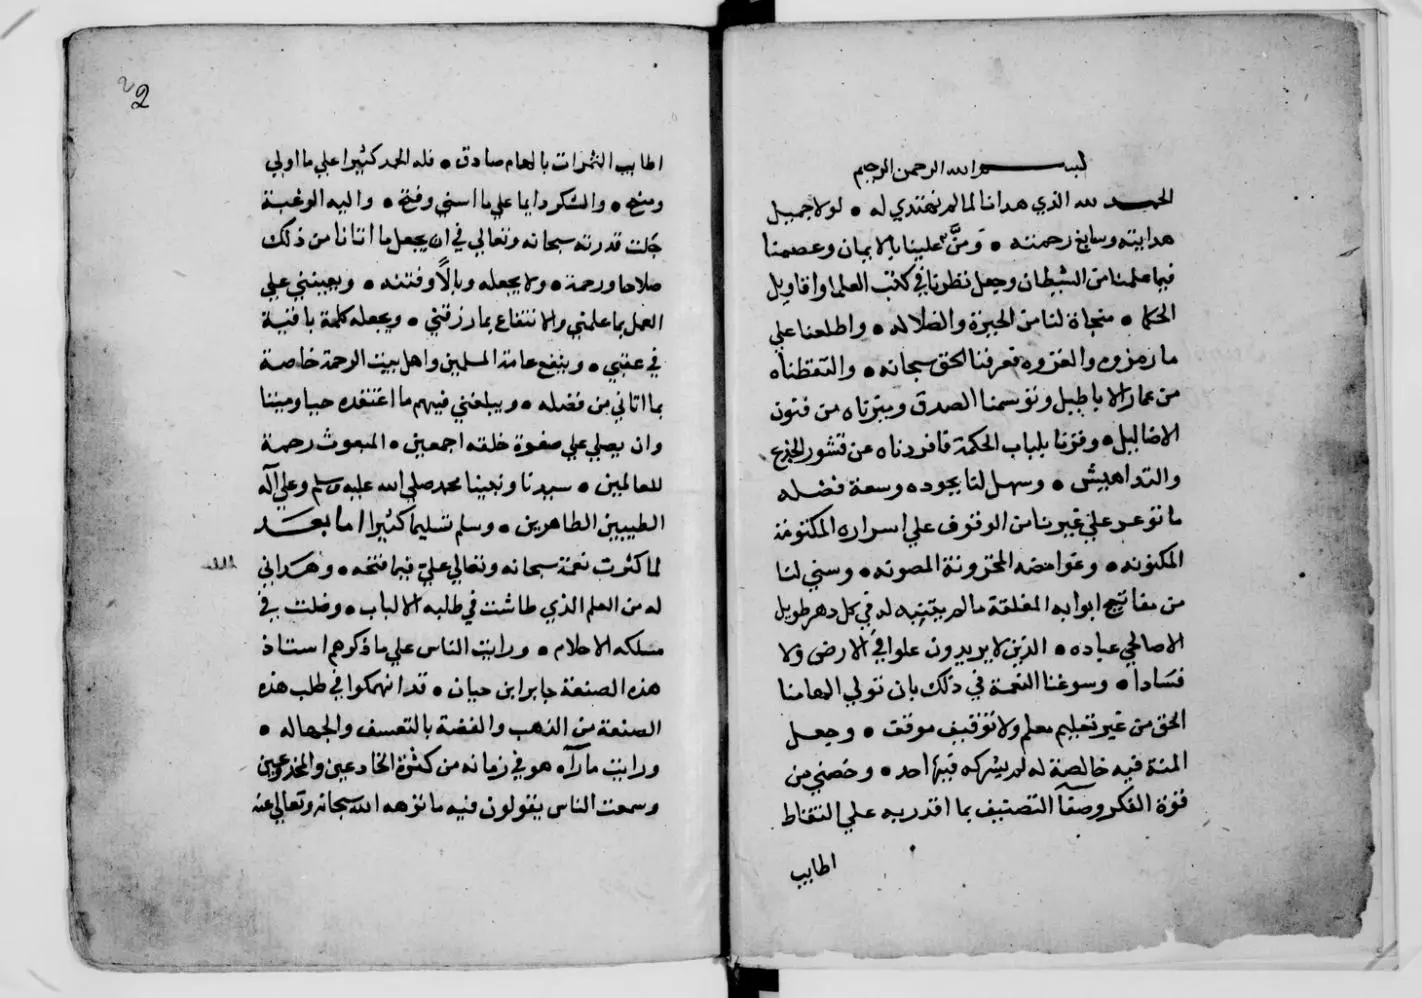 بسم الله الرحمن الرحيم
الحمد لله الذي هدانا لما لم نهتدي له • لولا جميل
هدايته وسابغ رحمته • ومنّ علينا بالايمان وعصمنا
فيما علمنا من الشيطان وجعل نظرنا في كتب العلما واقاويل
الحكما • منجاة لنا من الحيرة والضلاله • واطلعنا علي
ما رمزوه والغزوه تعرفنا الحق سبحانه • والتقطناه
من غمار الاباطيل وتوسمنا الصدق وميزناه من فنون
الاضاليل • وفوزنا بلباب الحكمة فافردناه من قشور الخدع
والتداهيش • وسهل لنا بجوده وسعة فضله
ما توعر علي غيرنا من الوقوف علي اسراره المكتومة
المكنونه • وغوامضه المخزونة المصونه • وسني لنا
من مفاتيح ابوابه المغلقة ما لم يتنبه له في كل دهر طويل
الا صالحي عباده • الذين لا يريدون علوا في الارض ولا
فسادا • وسوغنا النعمة في ذلك بان تولي الهامنا
الحق من غير تعليم معلم ولا توقيف موقف • وجعل
المنة فيه خالصة له لم يشركه فيها احد • وخصني من
قوة الفكر وصفآ التصنيف بما اقدر به علي التقاط
اطايب
2
اطايب الثمرات بالهام صادق • فله الحمد كثيرا علي ما اولي
ومنح • والشكر دايما علي ما اسني وفتح • واليه الرغبة
جلت قدرته سبحانه وتعالي في ان يجعل ما اتانا من ذلك
صلاحا ورحمة • ولا يجعله وبالًا وفتنه • ويعينني علي
العمل بما علمني والانتفاع بما رزقني • ويجعله كلمة باقية
في عقبي • وينفع عامة المسلمين واهل بيت الرحمة خاصة
بما اتاني من فضله • ويبلغني فيهم ما اعتقده حيا وميتا
وان يصلي علي صفوة خلقه اجمعين • المبعوث رحمة
للعالمين • سيدنا ونبينا محمد صلي الله عليه وسلم وعلي آله
الطيبين الطاهرين • وسلم تسليما كثيرا اما بعد
لما كثرت نعمة سبحانه وتعالي عليّ فيما فتحه • وهداني
له من العلم الذي طاشت في طلبه الالباب • وضلت في
مسلكه الاحلام • ورايت الناس علي ما ذكرهم استاذ
هذه الصنعة جابر ابن حيان • قد انهمكوا في طلب هذه
الصنعة من الذهب والفضة بالتعسف والجهاله •
ورايت ما رآه هو في زمانه من كثرة الخادعين والمخدوعين
وسمعت الناس يقولون فيه ما نزهه الله سبحانه وتعالي عنه